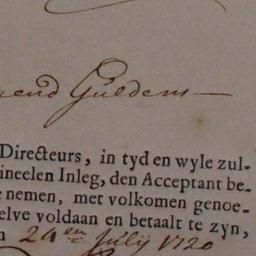 rend Guldens —
Directeurs, in tyd en wyle zul-
ineelen Inleg, den Acceptant be-
e nemen, met volkomen genoe-
elve voldaan en betaalt te zyn,
n 24en Julij 1720